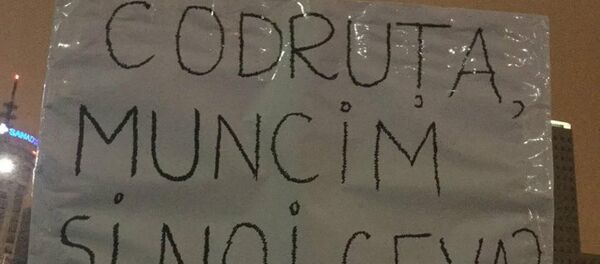 CODRUȚA,
MUNCIM
ȘI NOI CEVA?